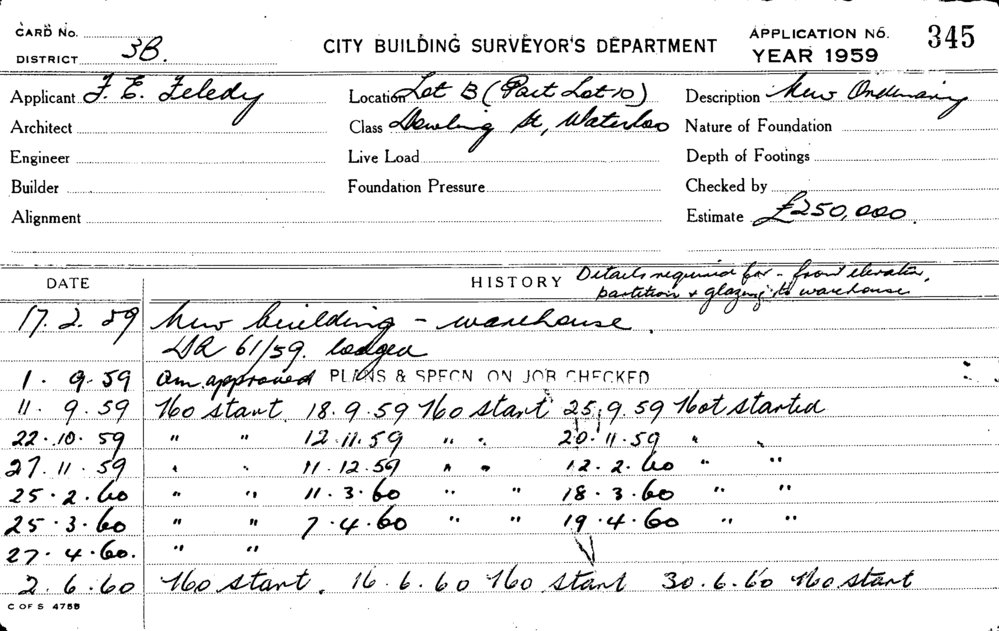 CARD No.
DISTRICT 3B.
CITY BUILDING SURVEYOR'S DEPARTMENT
APPLICATION No. 345
YEAR 1959
Applicant F. E. Feledy Location Lot B (Part Lot 10) Description New
Architect Class Dowling St, Waterloo Nature of Foundation
Engineer Live Load Depth of Footings
Builder Foundation Pressure Checked by
Alignment Estimate £250,000.
DATE HISTORY Details required for - front elevation,
partition & glazing to warehouse
17.2.59 New building - warehouse.
61/59. lodged
1.9.59 approved PLANS & SPECN ON JOB CHECKED
11.9.59 No start 18.9.59 No start 25.9.59 Not started
22.10.59 " " 12.11.59 " " 20.11.59 " "
27.11.59 " " 11.12.59 " " 12.2.60 " "
25.2.60 " " 11.3.60 " " 18.3.60 " "
25.3.60 " " 7.4.60 " " 19.4.60 " "
27.4.60. " "
2.6.60 No start. 16.6.60 No start 30.6.60 No start
C OF S 4755